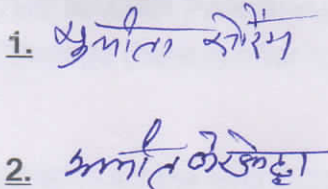 1. सुनीता सोरेंग
2. अमित केरकेट्टा